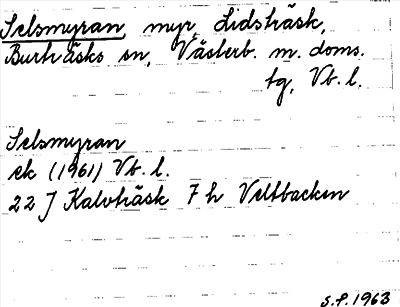 Selsmyran, myr, Lidsträsk,
Burträsks sn, Västerb. m. doms.
tg, Vb. l.
Selsmyran
ek (1961) Vb. l.
22 J Kalvträsk 7 h Vettbacken
S.F. 1963